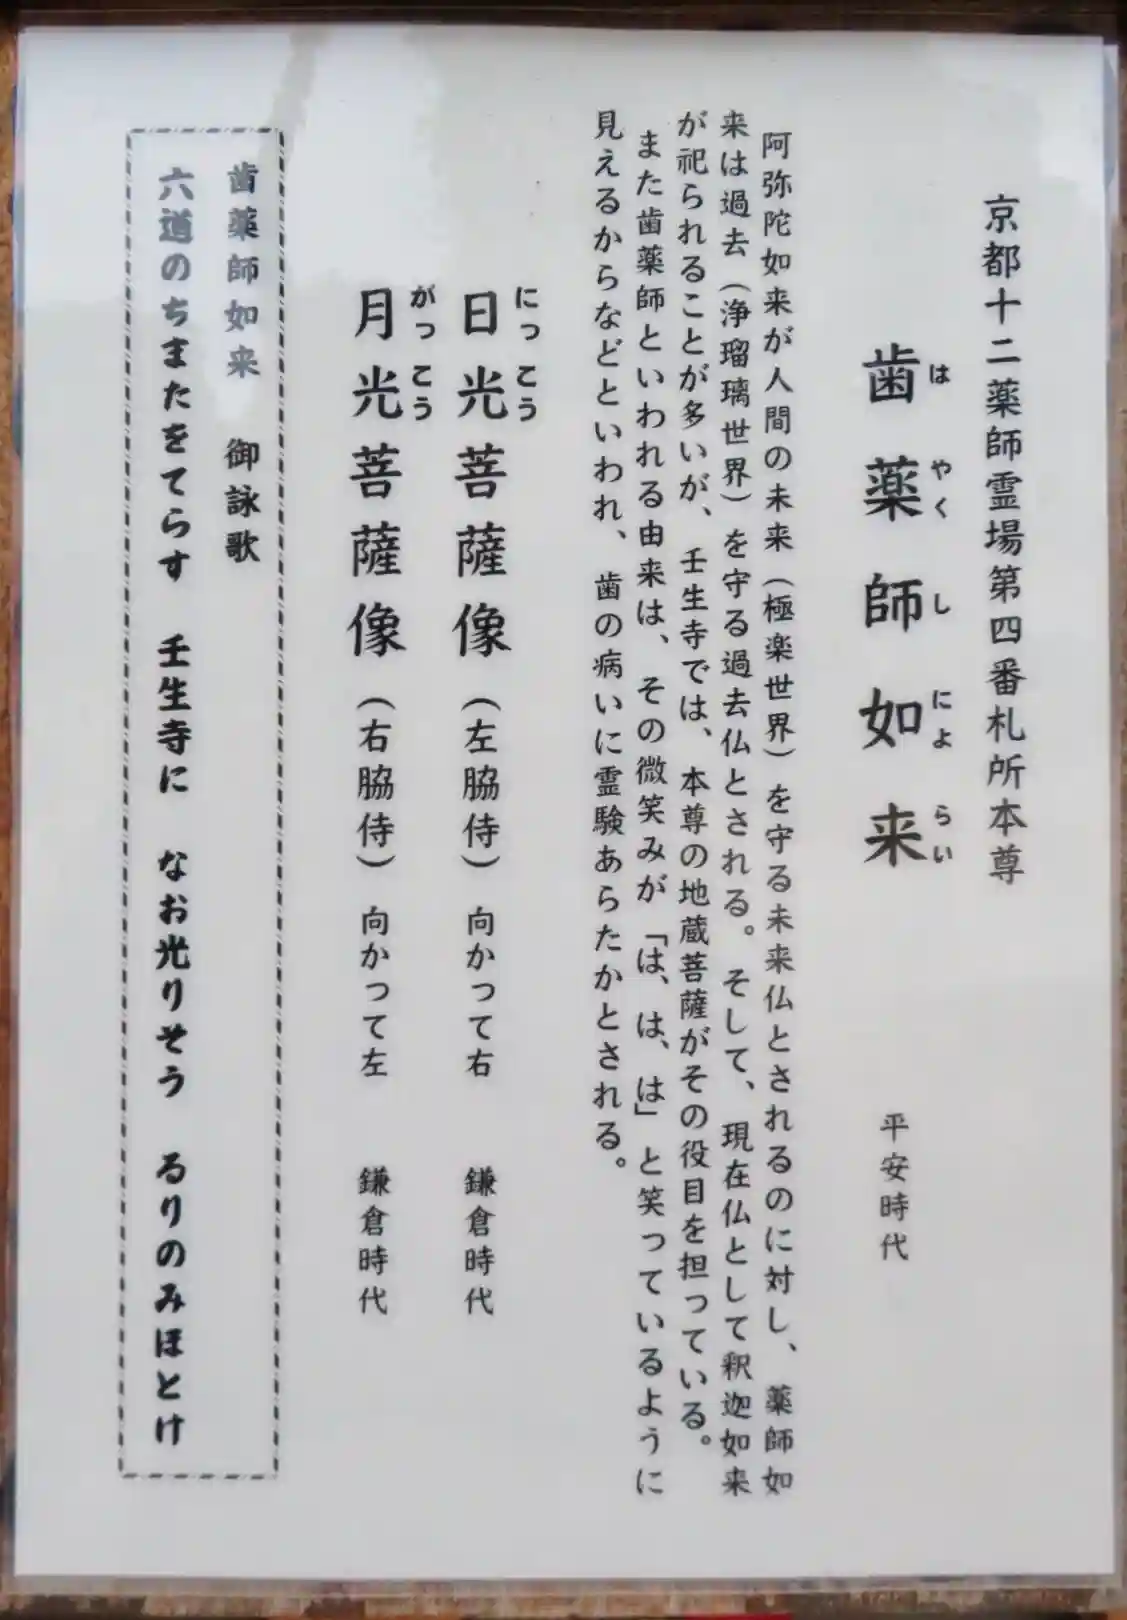 京都十二薬師霊場第四番札所本尊
歯薬師如来 平安時代
はやくしにょらい
阿弥陀如来が人間の未来（極楽世界）を守る未来仏とされるのに対し、薬師如
来は過去（浄瑠璃世界）を守る過去仏とされる。そして、現在仏として釈迦如来
が祀られることが多いが、壬生寺では、本尊の地蔵菩薩がその役目を担っている。
また歯薬師といわれる由来は、その微笑みが「は、は、は」と笑っているように
見えるからなどといわれ、歯の病いに霊験あらたかとされる。
にっこう
日光菩薩像（左脇侍）向かって右 鎌倉時代
がっこう
月光菩薩像（右脇侍）向かって左 鎌倉時代
歯薬師如来 御詠歌
六道のちまたをてらす 壬生寺に なお光りそう るりのみほとけ